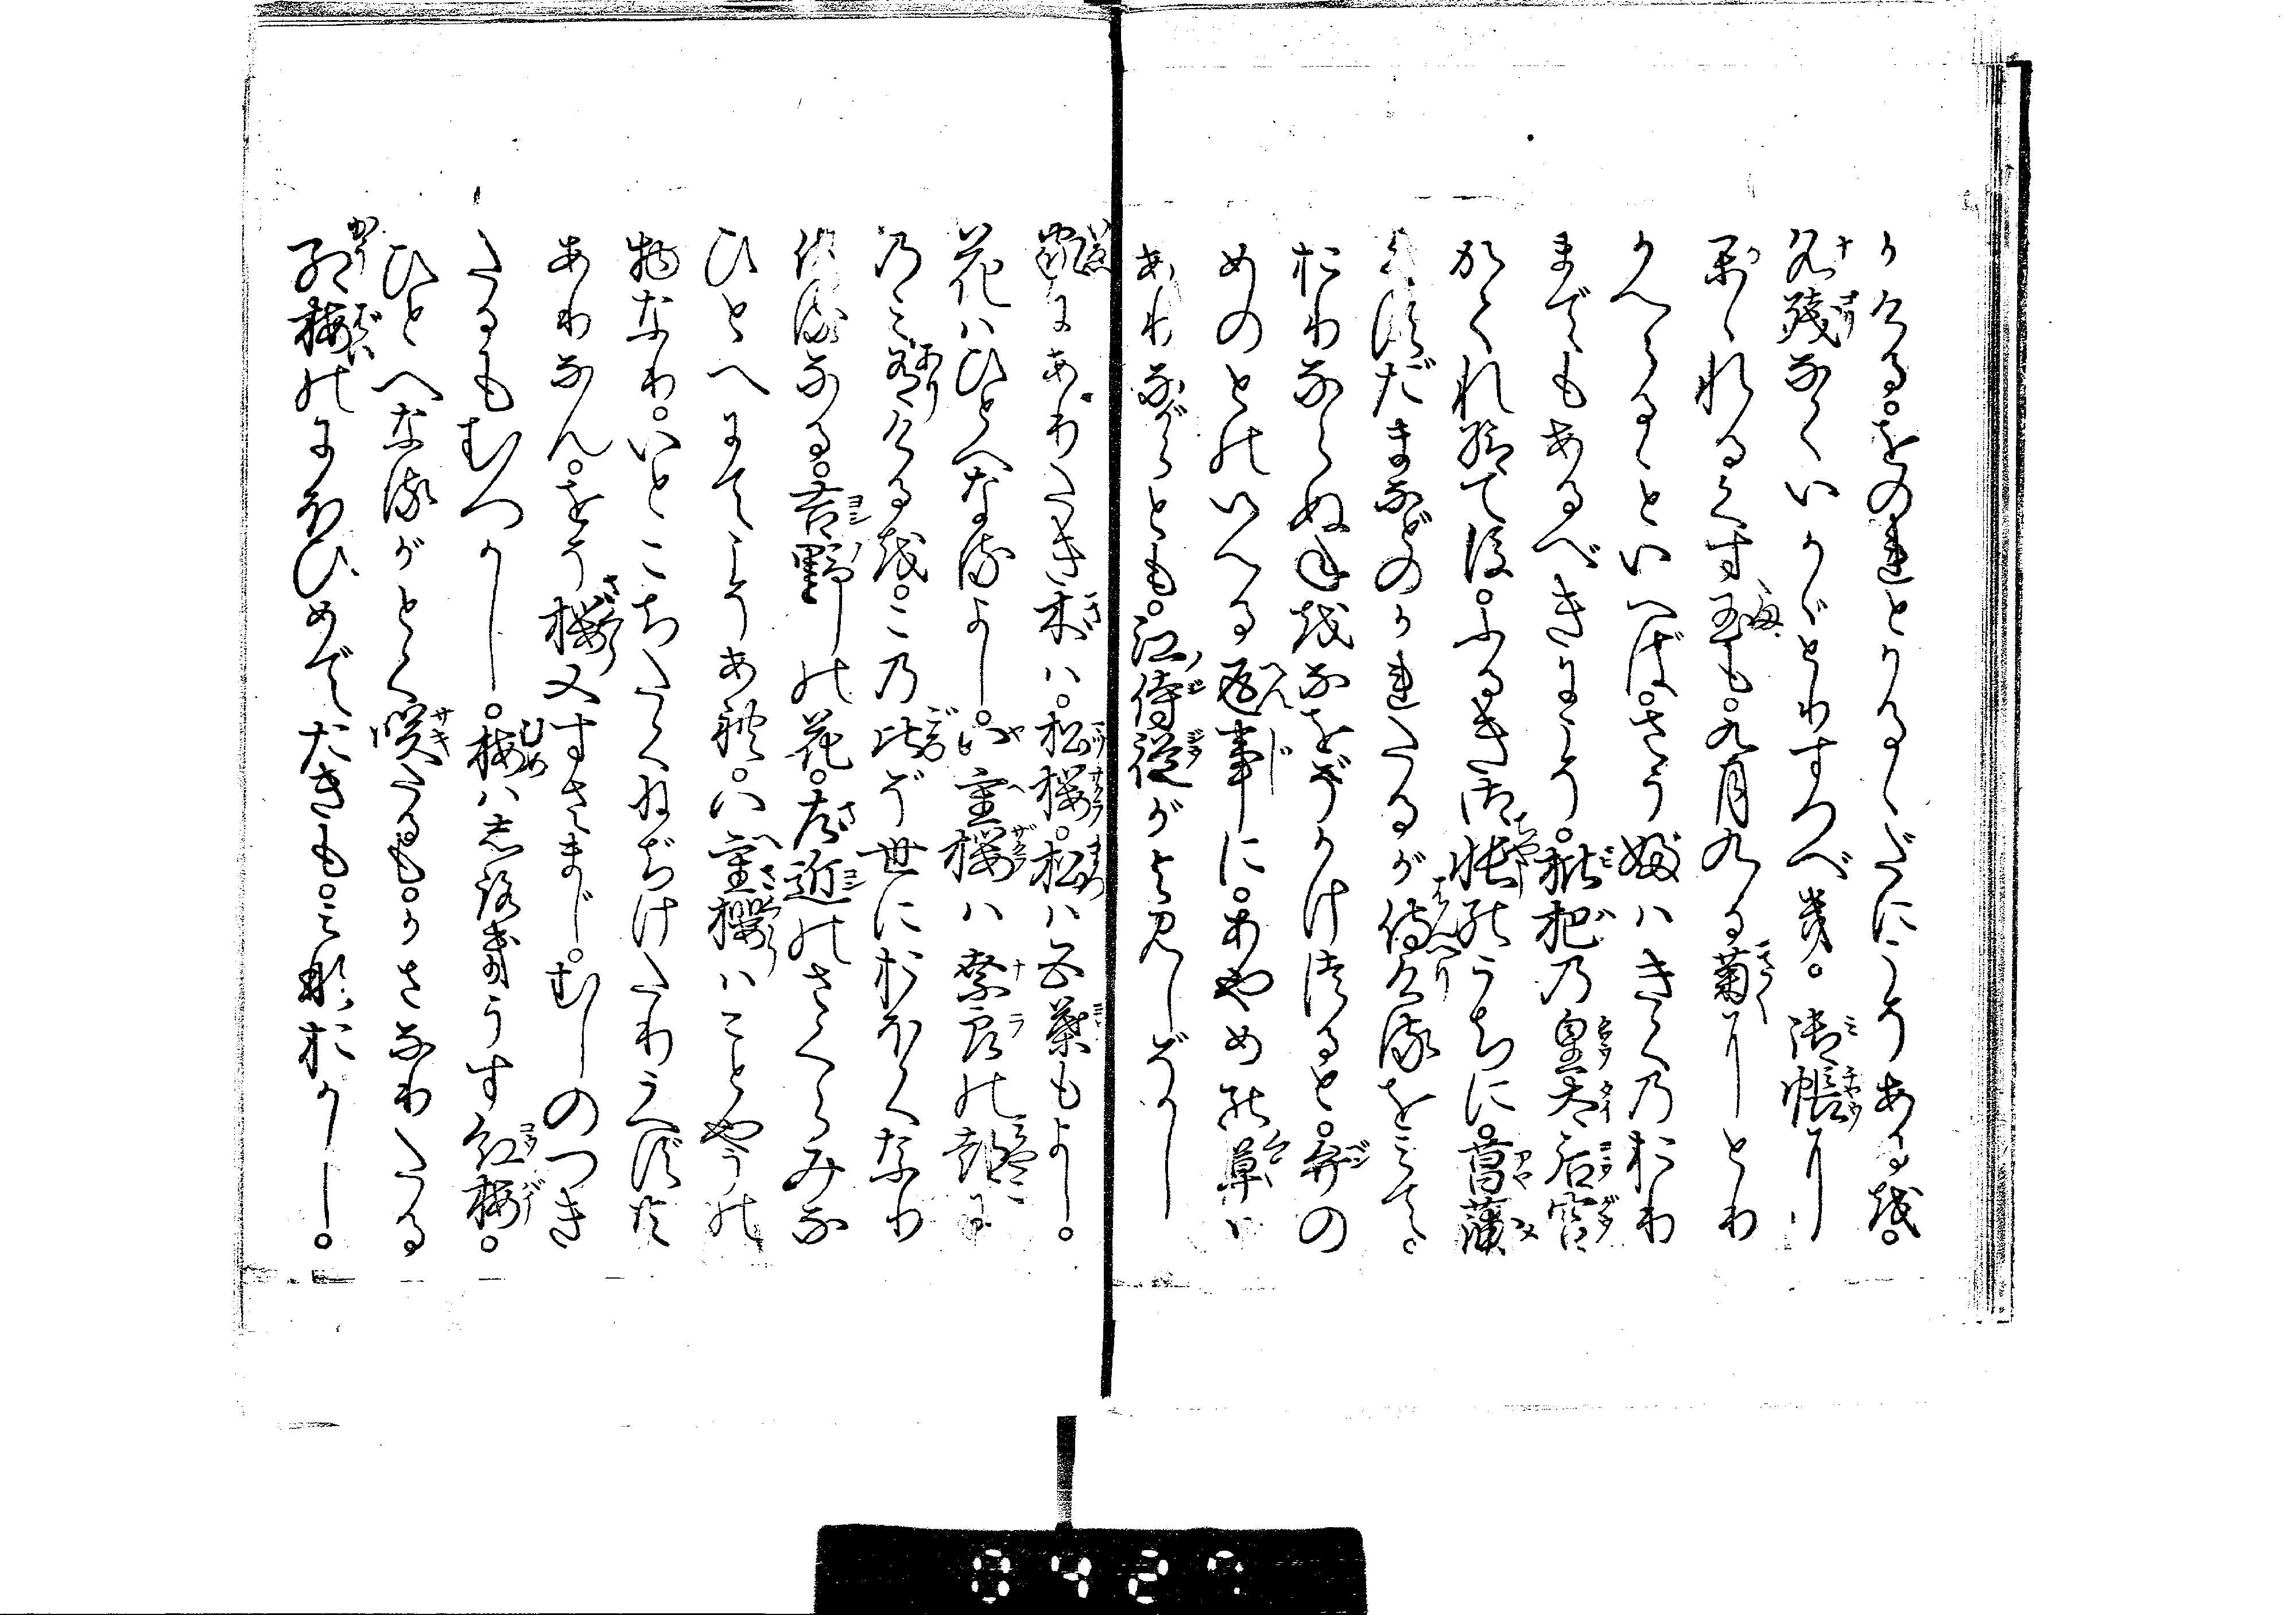 かくる。をのれとかるゝだにこそあるを。
名残なくいかゞとりすつべき。御帳に
かゝれるくす玉も。九月九日菊にとり
かへらるゝといへば。さうぶはきくのおり
までもあるべきにこそ。枇杷の皇太后宮
かくれ給て後。ふるき御帳のうちに。菖蒲
くすだまなどのかれたるが侍けるをみて。
おりならぬねをなをぞかけつると。弁の
めのとのいへる返事に。あやめの草は
ありながらとも。江侍従がよみしぞかし
家にありたき木は。松桜。松は五葉もよし。
花はひとへなるよし。八重桜は奈良の都に
のみ有けるを。この比ぞ世におほくなり
侍るなる。吉野の花。左近のさくらみな
ひとへにてこそあれ。八重桜はことやうの
物なり。いとこちたくねぢけたりうへずとも
ありなん。をそ桜又すさまじ。むしのつき
たるもむつかし。梅はしろきうす紅梅。
ひとへなるがとく咲たるも。かさなりたる
紅梅のにほひめでたきも。みなおかし。